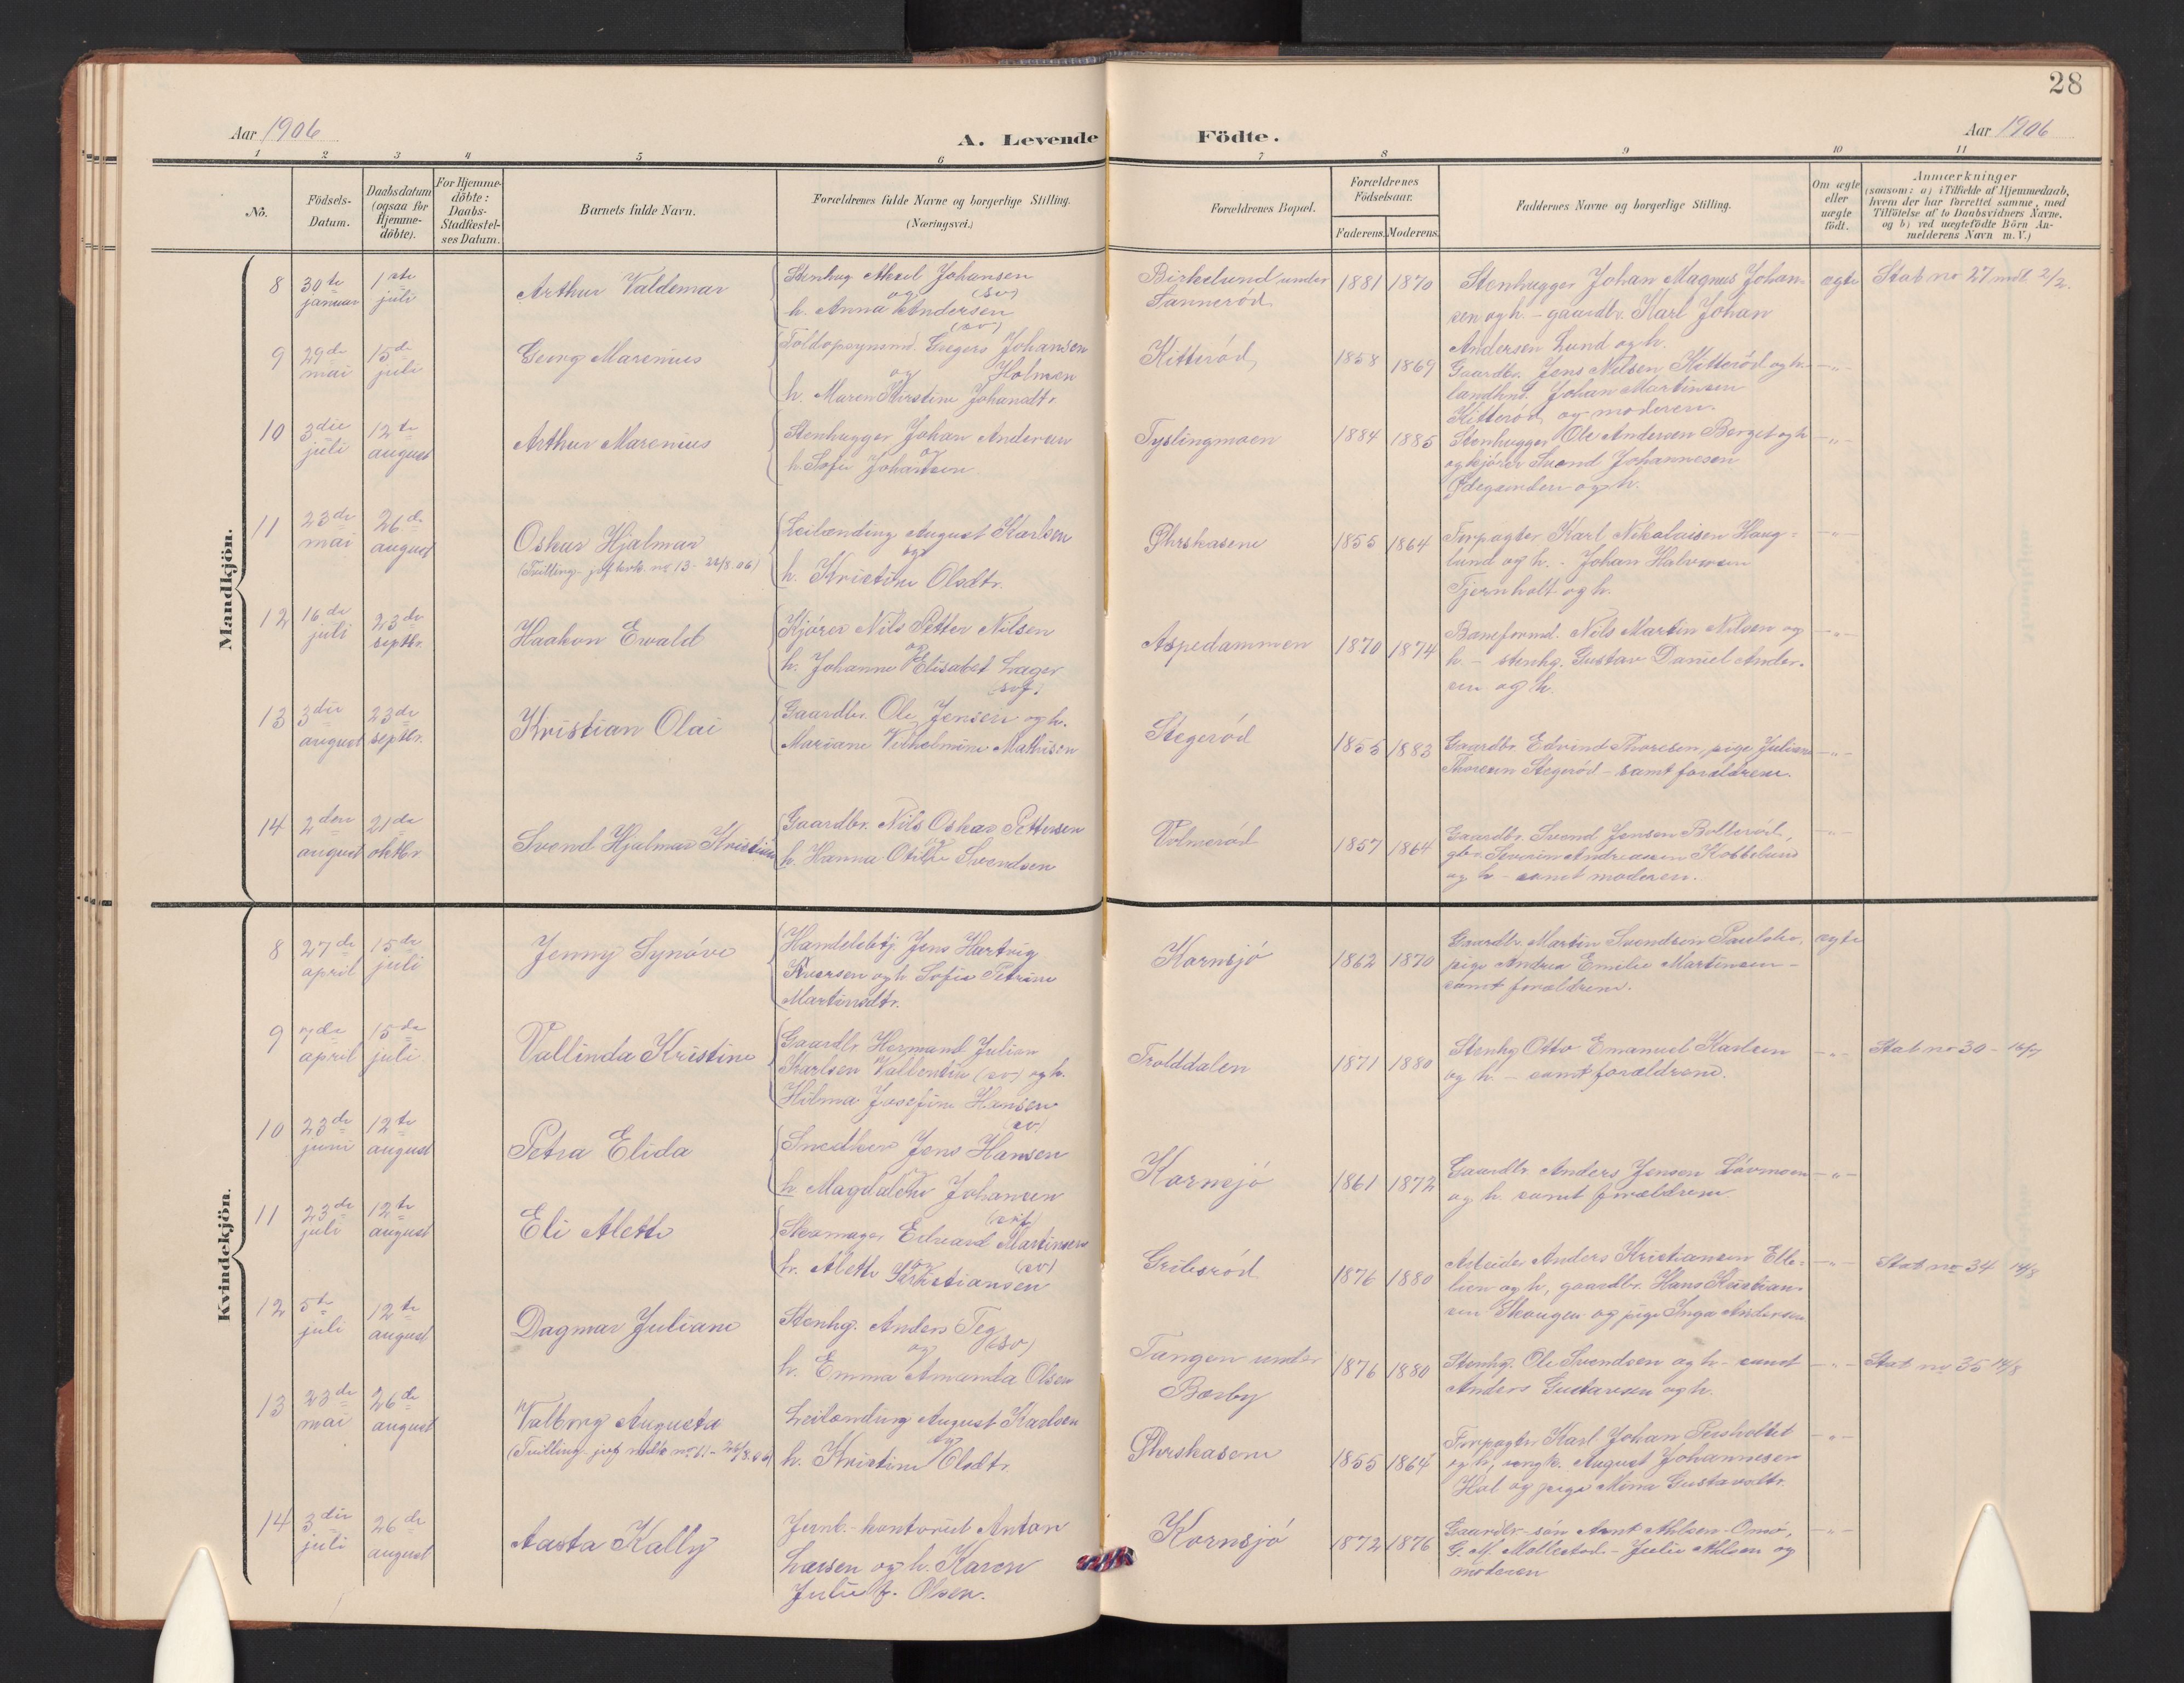 28
Aar 1906
A. Levende Födte.
Aar 1906
1 2 3 4 5 6 7 8 9 10 11
No.
Födsels-
Datum.
Daabsdatum
(ogsaa for
Hjemme-
döbte).
For Hjemme-
döbte:
Daabs-
Stadfæstel-
ses Datum.
Barnets fulde Navn.
Forældrenes fulde Navne og borgerlige Stilling.
(Næringsvei.)
Forældrenes Bopæl.
Forældrenes
Födselsaar.
Faderens. Moderens.
Faddernes Navne og borgerlige Stilling.
Om ægte
eller
uægte
født.
Anmærkninger
(saasom: a) i Tilfælde af Hjemmedaab,
hvem der har forrettet samme, med
Tilföielse af to Daabsvidners Navne,
og b) ved uægtefödte Börn An-
melderens Navn m. V.)
Mandkjön.
8
30te
januar
1ste
juli
Arthur Valdemar
Stenhug Aksel Johansen
og (sv)
h. Anna Andersen
(sv)
Birkelund under
Sannerød
1881 1870
Stenhugger Johan Magnus Johan-
sen og h. - gaardbr. Karl Johan
Andersen Lund og h.
ægte
Stat no 27 mdt 2/2.
9
29de
mai
15de
juli
Georg Marenius
Toldopsynsmd. Gregers Johansen
og Holmen
h. Maren Kirstine Johansdtr.
Kitterød,
1858 1869
Gaardbr. Jens Nilsen Kitterød og h.
landhnd. Johan Martinsen
Kitterød og moderen.
-"-
10
3die
juli
12te
august
Arthur Marenius
Stenhugger Johan Andersen
og
h. Sofie Johansen.
Tyslingmoen
1884 1885
Stenhugger Ole Andersen Berget og h
og kjører Svend Johannesen
Ødegaarden og h.
-"-
11
23de
mai
26de
august
Oskar Hjalmar
(Tvilling jvf kvk. no 13 - 26/8.06)
Leilænding August Karlsen
og
h. Kristine Olsdtr.
1855 1864
Forpagter Karl Nikolaisen Haug-
lund og h. - Johan Halvorsen
Tjernholt og h.
-"-
12
16de
juli
23de
septbr.
Haakon Ewald
Kjører Nils Petter Nilsen
og
h. Johanne Elisabet Lager
(svf.)
Aspedammen
1870 1874
Baneformd. Nils Martin Nilsen og
h. - stenhg. Gustav Daniel Ander-
sen og h.
-"-
13
3die
august
23de
septbr.
Kristian Olai
Gaardbr. Ole Jensen og h.
Mariane Vilhelmine Mathisen
Stegerød
1855 1883
Gaardbr. Edvind Thoresen, pige Juliane
Thoresen Stegerød - samt forældrene.
-"-
14
2den
august
21de
oktbr.
Svend Hjalmar Kristian
Gaardbr. Nils Oskar Pettersen
h. Hanna Otilie Svendsen
Volmerød
1857 1864
Gaardbr. Svend Jensen Bollerød,
gbr. Severin Andreassen Kobbelund
og h - samt moderen.
-"-
Kvindekjön.
8
27de
april
15de
juli
Jenny Synøve
Handelsbtj. Jens Hartvig
Iversen og h. Sofie Petrine
Martinsdtr.
Kornsjø
1862 1870
Gaardbr. Martin Svendsen Paulsbo,
pige Andrea Emilie Martinsen -
samt forældrene.
ægte
9
7de
april
15de
juli.
Vallinda Kristine
Gaardbr. Hermand Julian
Karlsen Vallentin (sv) og h.
Hilma Josefine Hansen
(sv)
Trolddalen
1871 1880
Stenhg Otto Emanuel Karlsen
og h. - samt forældrene.
-"-
Stat no 30 - 16/7
10
23de
juni
12te
august
Petra Elida
Snedker Jens Hansen
og
h. Magdalene Johansen
Kornsjø
1861 1872
Gaardbr. Anders Jensen Løvmoen
og h. samt forældrene
-"-
11
23de
juli
12te
august
Eli Alette
Skomager Edvard Martinsen
og (sv)
h. Alette Kristiansen
1876 1880
Arbeider Anders Kristiansen Elle-
lien og h, gaardbr. Hans Kristian-
sen Skaugen og pige Inga Andersen
-"-
Stat no 34 14/8
12
5te
juli
12te
august
Dagmar Juliane
Stenhg. Anders Teg
og (sv)
h. Emma Amanda Olsen
Tangen under
Bærby
1876 1880
Stenhg. Ole Svendsen og h. - samt
Anders Gustavsen og h.
-"-
Stat no 35 14/8
13
23de
mai
26de
august
Valborg Augusta
(Tvilling - jvf mdk no 11 - 26/8.06)
Leilænding August Karlsen
og
h. Kristine Olsdtr.
1855 1864
Forpagter Karl Johan
og h, ungk. August Johannesen
Hol og pige Mina Gustavsdtr.
-"-
14
3die
juli
26de
august
Aasta Kally
Jernb.-kontorist Anton
Larsen og h. Karen
Julie f. Olsen.
Kornsjø
1872 1876
Gaardbr.-søn Arnt Ahlsen - Omø,
G. M. Mollestad. - Julie Ahlsen og
moderen
-"-